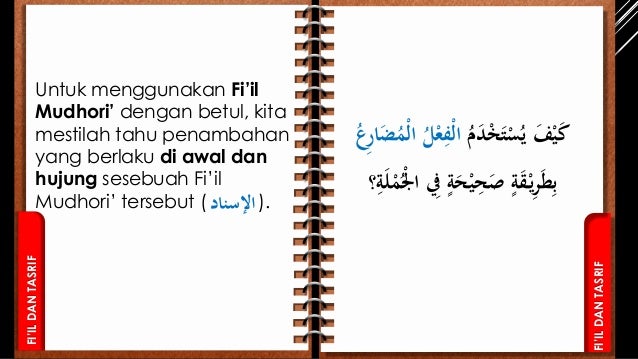 Untuk menggunakan Fi'il
Mudhori' dengan betul, kita
mestilah tahu penambahan
yang berlaku di awal dan
hujung sesebuah Fi'il
Mudhori' tersebut (الإسناد).
كَيْفَ يُسْتَخْدَمُ الْفِعْلُ الْمُضَارِعُ
بِطَرِيْقَةٍ صَحِيْحَةٍ فِي الْجُمْلَةِ؟
FI'IL DAN TASRIF
FI'IL DAN TASRIF